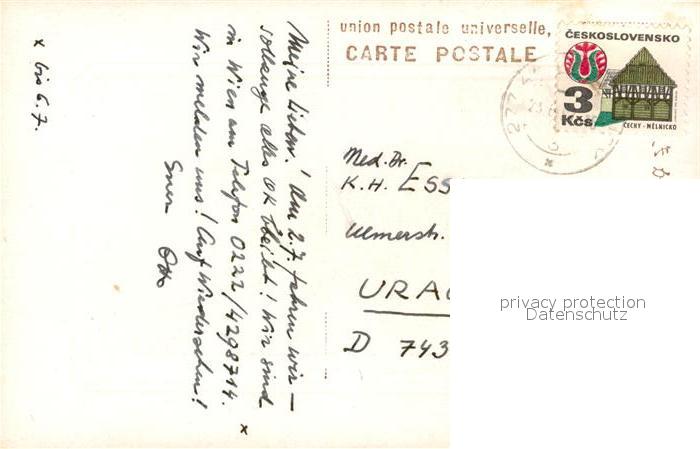 Meine Lieben! Am 2.7. fahren wir –
solange alles OK bleibt! Wir sind
in Wien am Telefon 0222/4298714. x
Wir melden uns! Auf Wiedersehen!
Euer Otto
x bis 6.7.
union postale universelle,
CARTE POSTALE
ČESKOSLOVENSKO
3
Kčs
ČECHY - MĚLNICKO
Med. Dr.
K. H. ESS
Ulmerstr.
URAC
D 743
privacy protection
Datenschutz